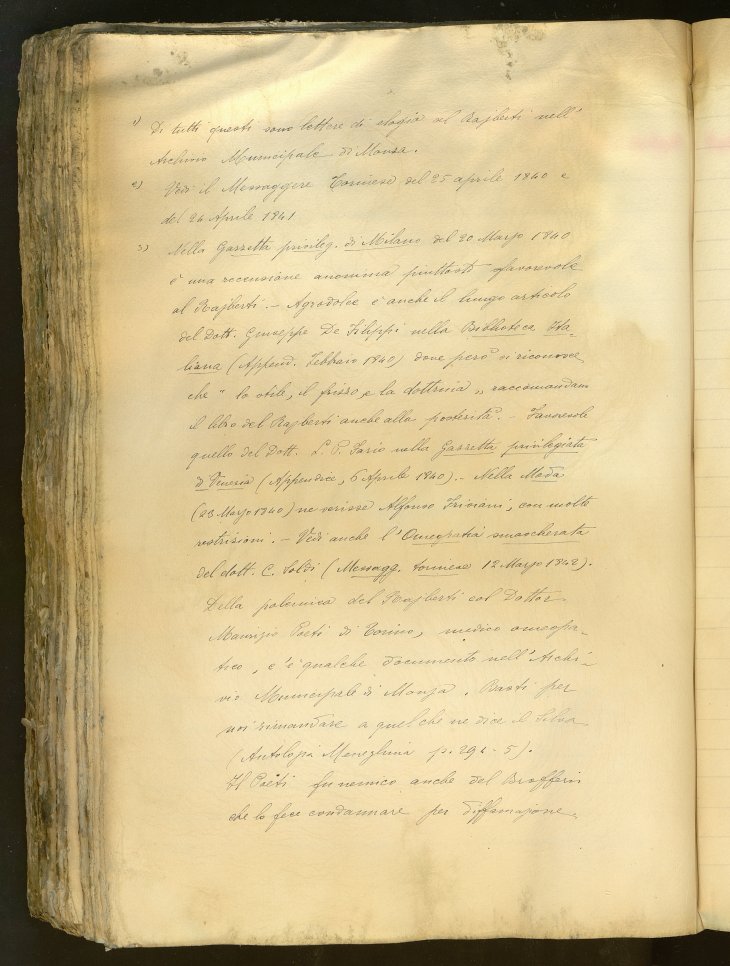 1) Di tutti questi sono lettere di elogio al Rajberti nell'
Archivio Municipale di Monza.
2) Vedi il Messaggere Torinese del 25 aprile 1840 e
del 24 Aprile 1841
3) Nella Gazzetta privileg. di Milano del 20 Marzo 1840
è una recensione anonima piuttosto favorevole
al Rajberti. - Agrodolce è anche il lungo articolo
del Dott. Giuseppe De Filippi nella Biblioteca Ita-
liana (Append. Febbraio 1840) dove però si riconosce
che " lo stile, il frizzo, e la dottrina " raccomandano
il libro del Rajberti anche alla posterità. - Favorevole
quello del Dott. L. P. Fario nella Gazzetta privilegiata
di Venezia (Appendice, 6 Aprile 1840). - Nella Moda
(23 Marzo 1840) ne scrisse Alfonso Frisiani, con molte
restrizioni. - Vedi anche l'Omeopatia smascherata
del dott. C. Soldi (Messagg. torinese 12 Marzo 1842).
Della polemica del Rajberti col Dottor
Maurizio Poeti di Torino, medico omeopa-
tico, c'è qualche documento nell'Archi-
vio Municipale di Monza. Basti per
noi rimandare a quel che ne dice il Silva
(Antologia Meneghina p. 294-5).
Il Poeti fu nemico anche del Brofferio
che lo fece condannare per diffamazione.